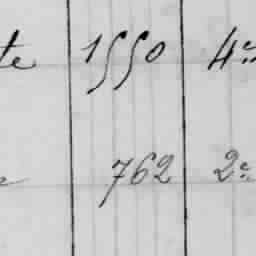 te 1550 4e
762 2e